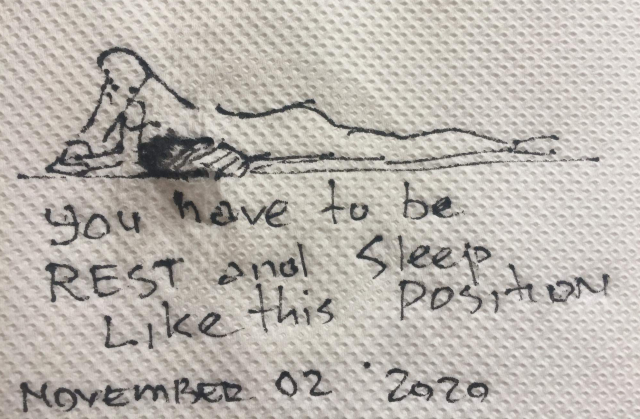 you have to be
REST and Sleep
Like this POSITION
NOVEMBER 02 '2020